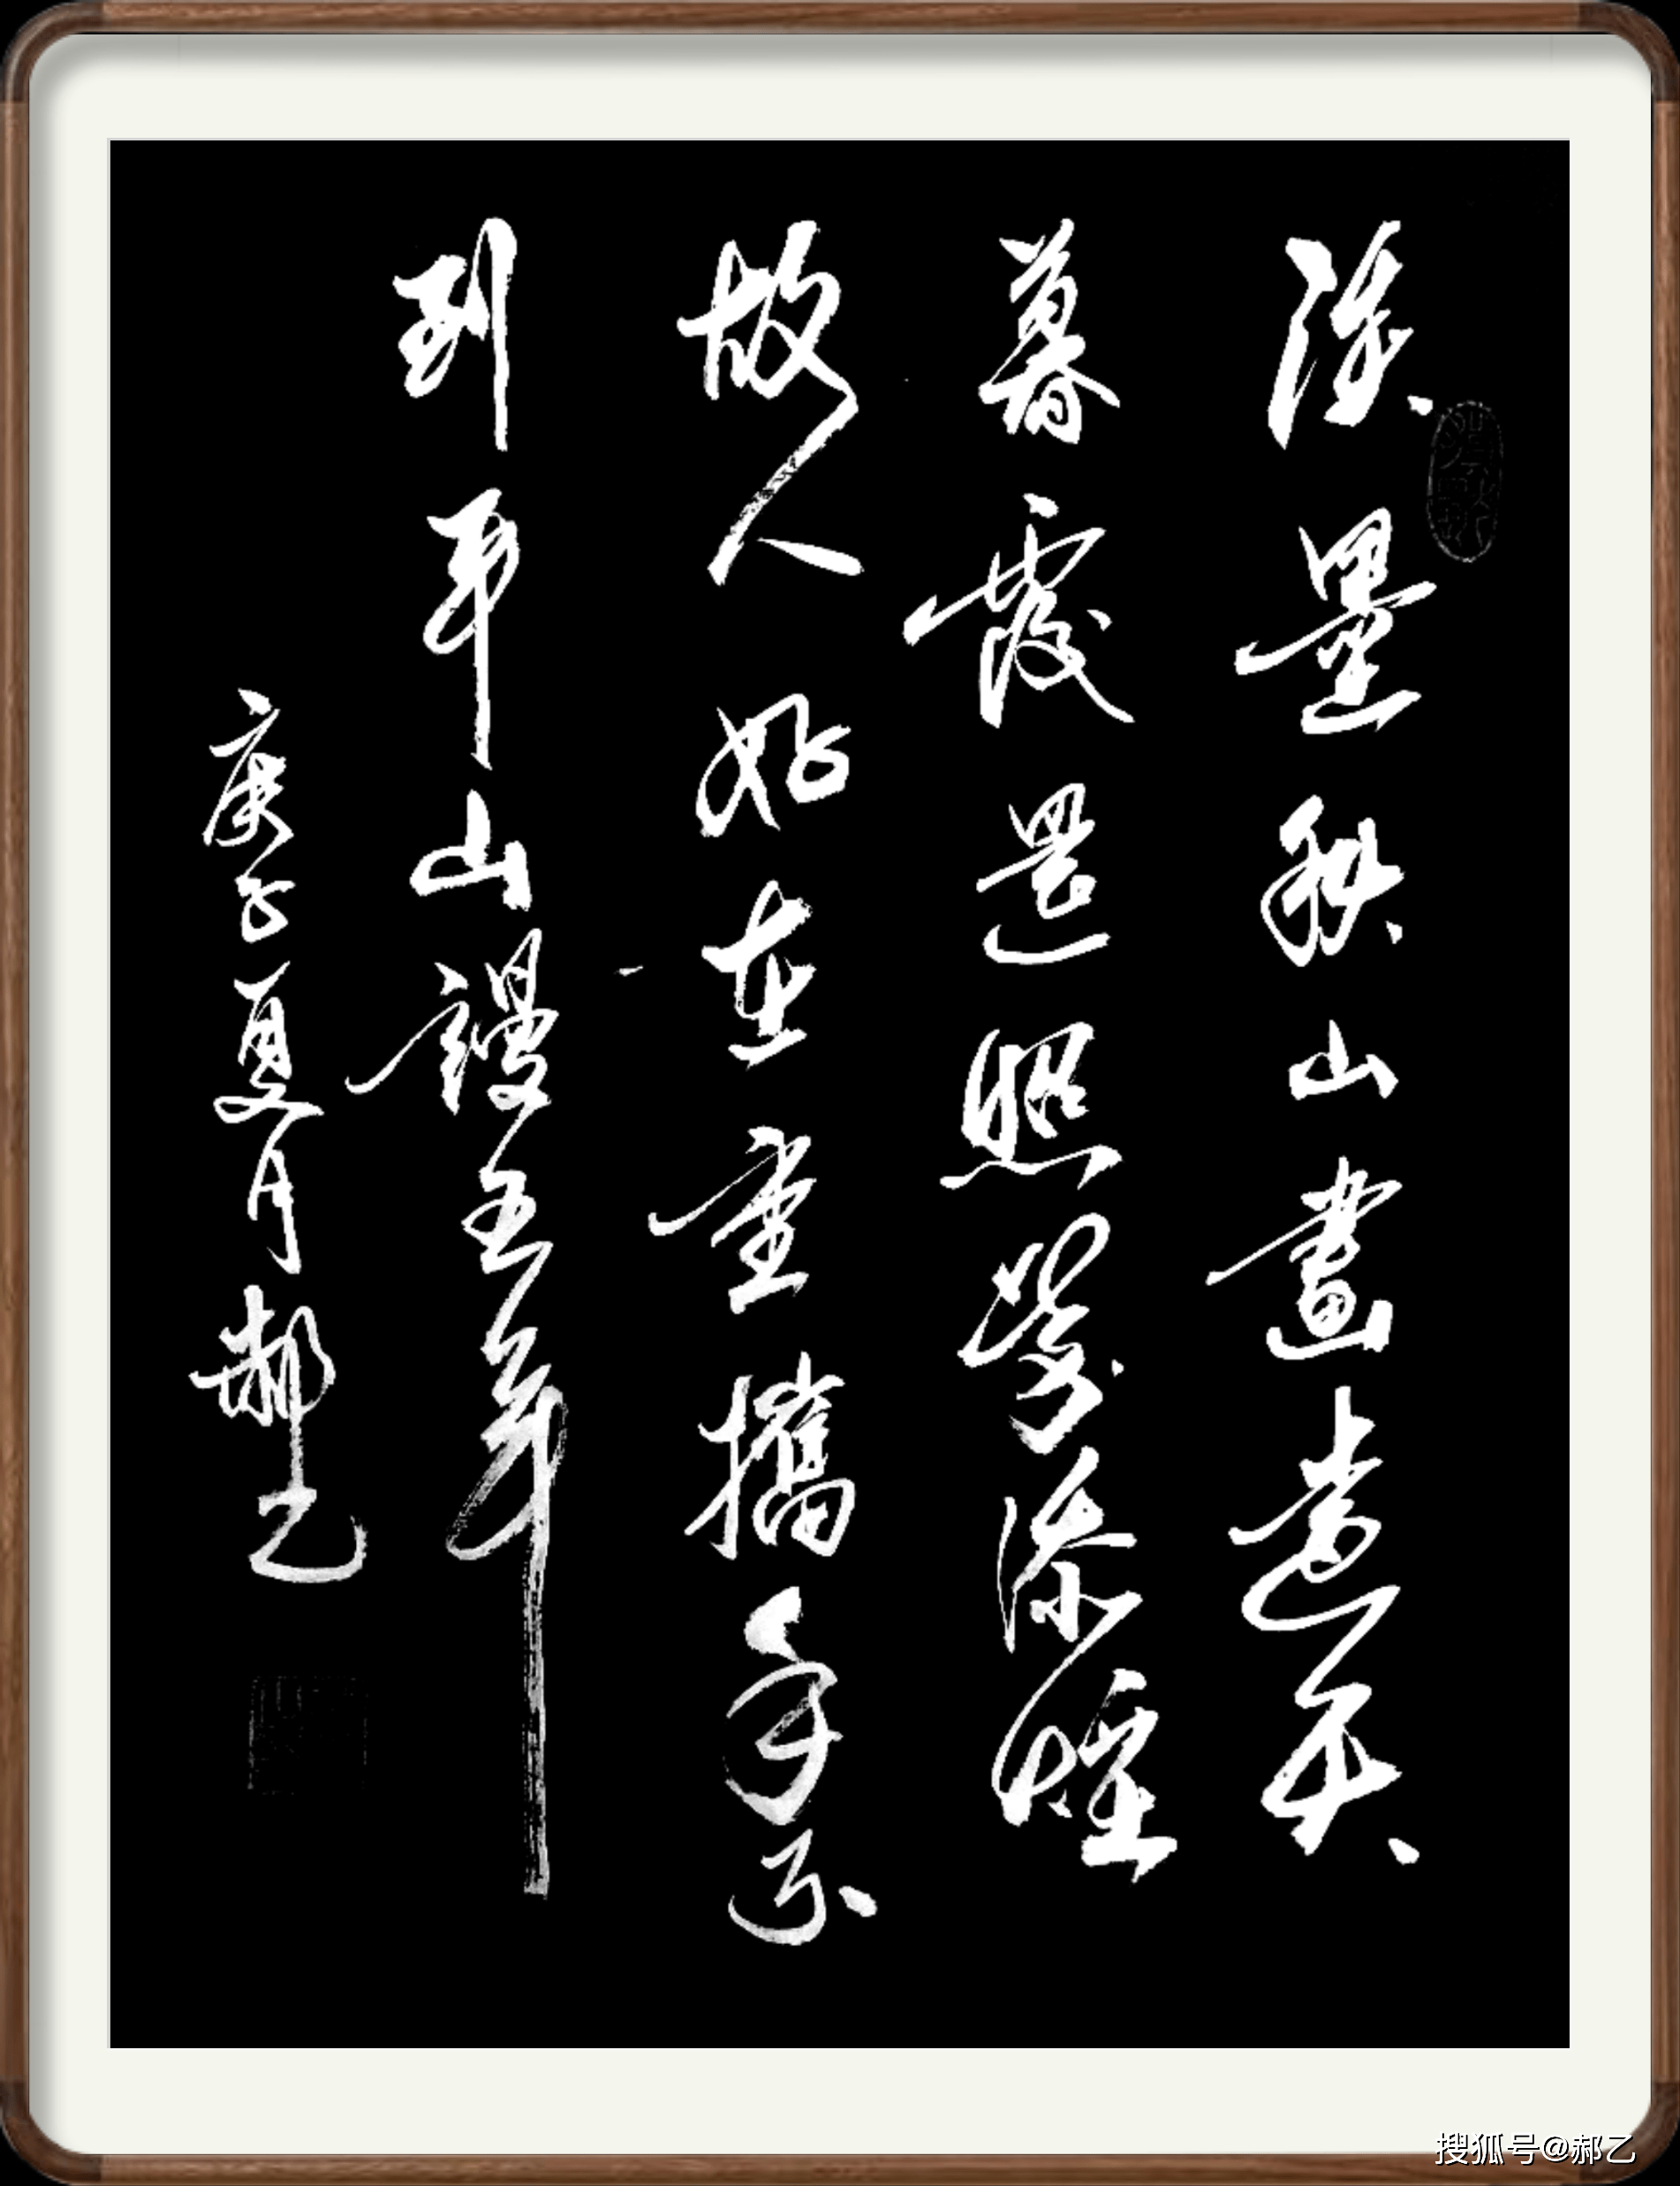 淡墨秋山畫遠天
暮霞還照紫添煙
故人好在重攜手不
到平山謾五年
庚子夏月郝乙
搜狐号@郝乙